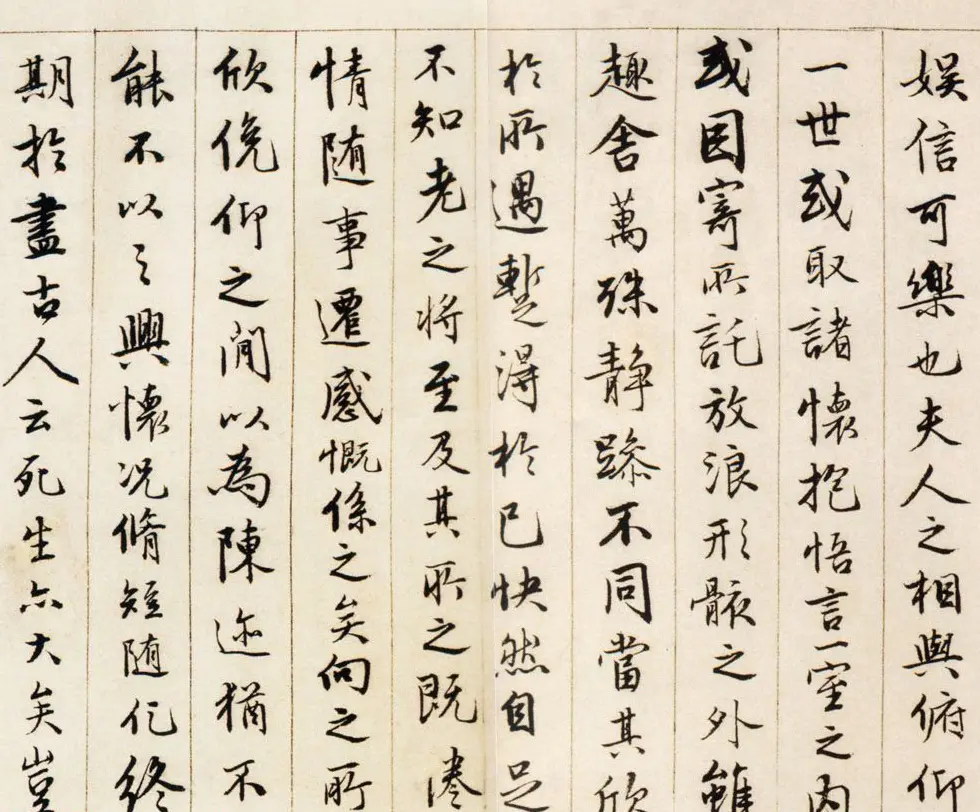 娛信可樂也夫人之相與俯仰
一世或取諸懷抱悟言一室之內
或因寄所託放浪形骸之外雖
趣舍萬殊靜躁不同當其欣
於所遇暫得於己快然自足
不知老之將至及其所之既惓
情隨事遷感慨係之矣向之所
欣俛仰之閒以為陳迹猶不
能不以之興懷況脩短隨化終
期於盡古人云死生亦大矣豈